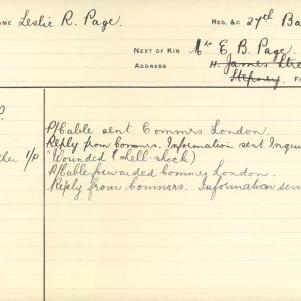 NAME Leslie R. Page REG. &c 27th Ba
NEXT OF KIN Mr E. B. Page.
ADDRESS H. James Stre
Stepney. F
P/Cable sent Commrs London.
Reply from Commrs. Information sent Inqui
ther 1/P "Wounded (shell-shock)
P/Cable forwarded Commrs London.
Reply from Commrs. Information sen